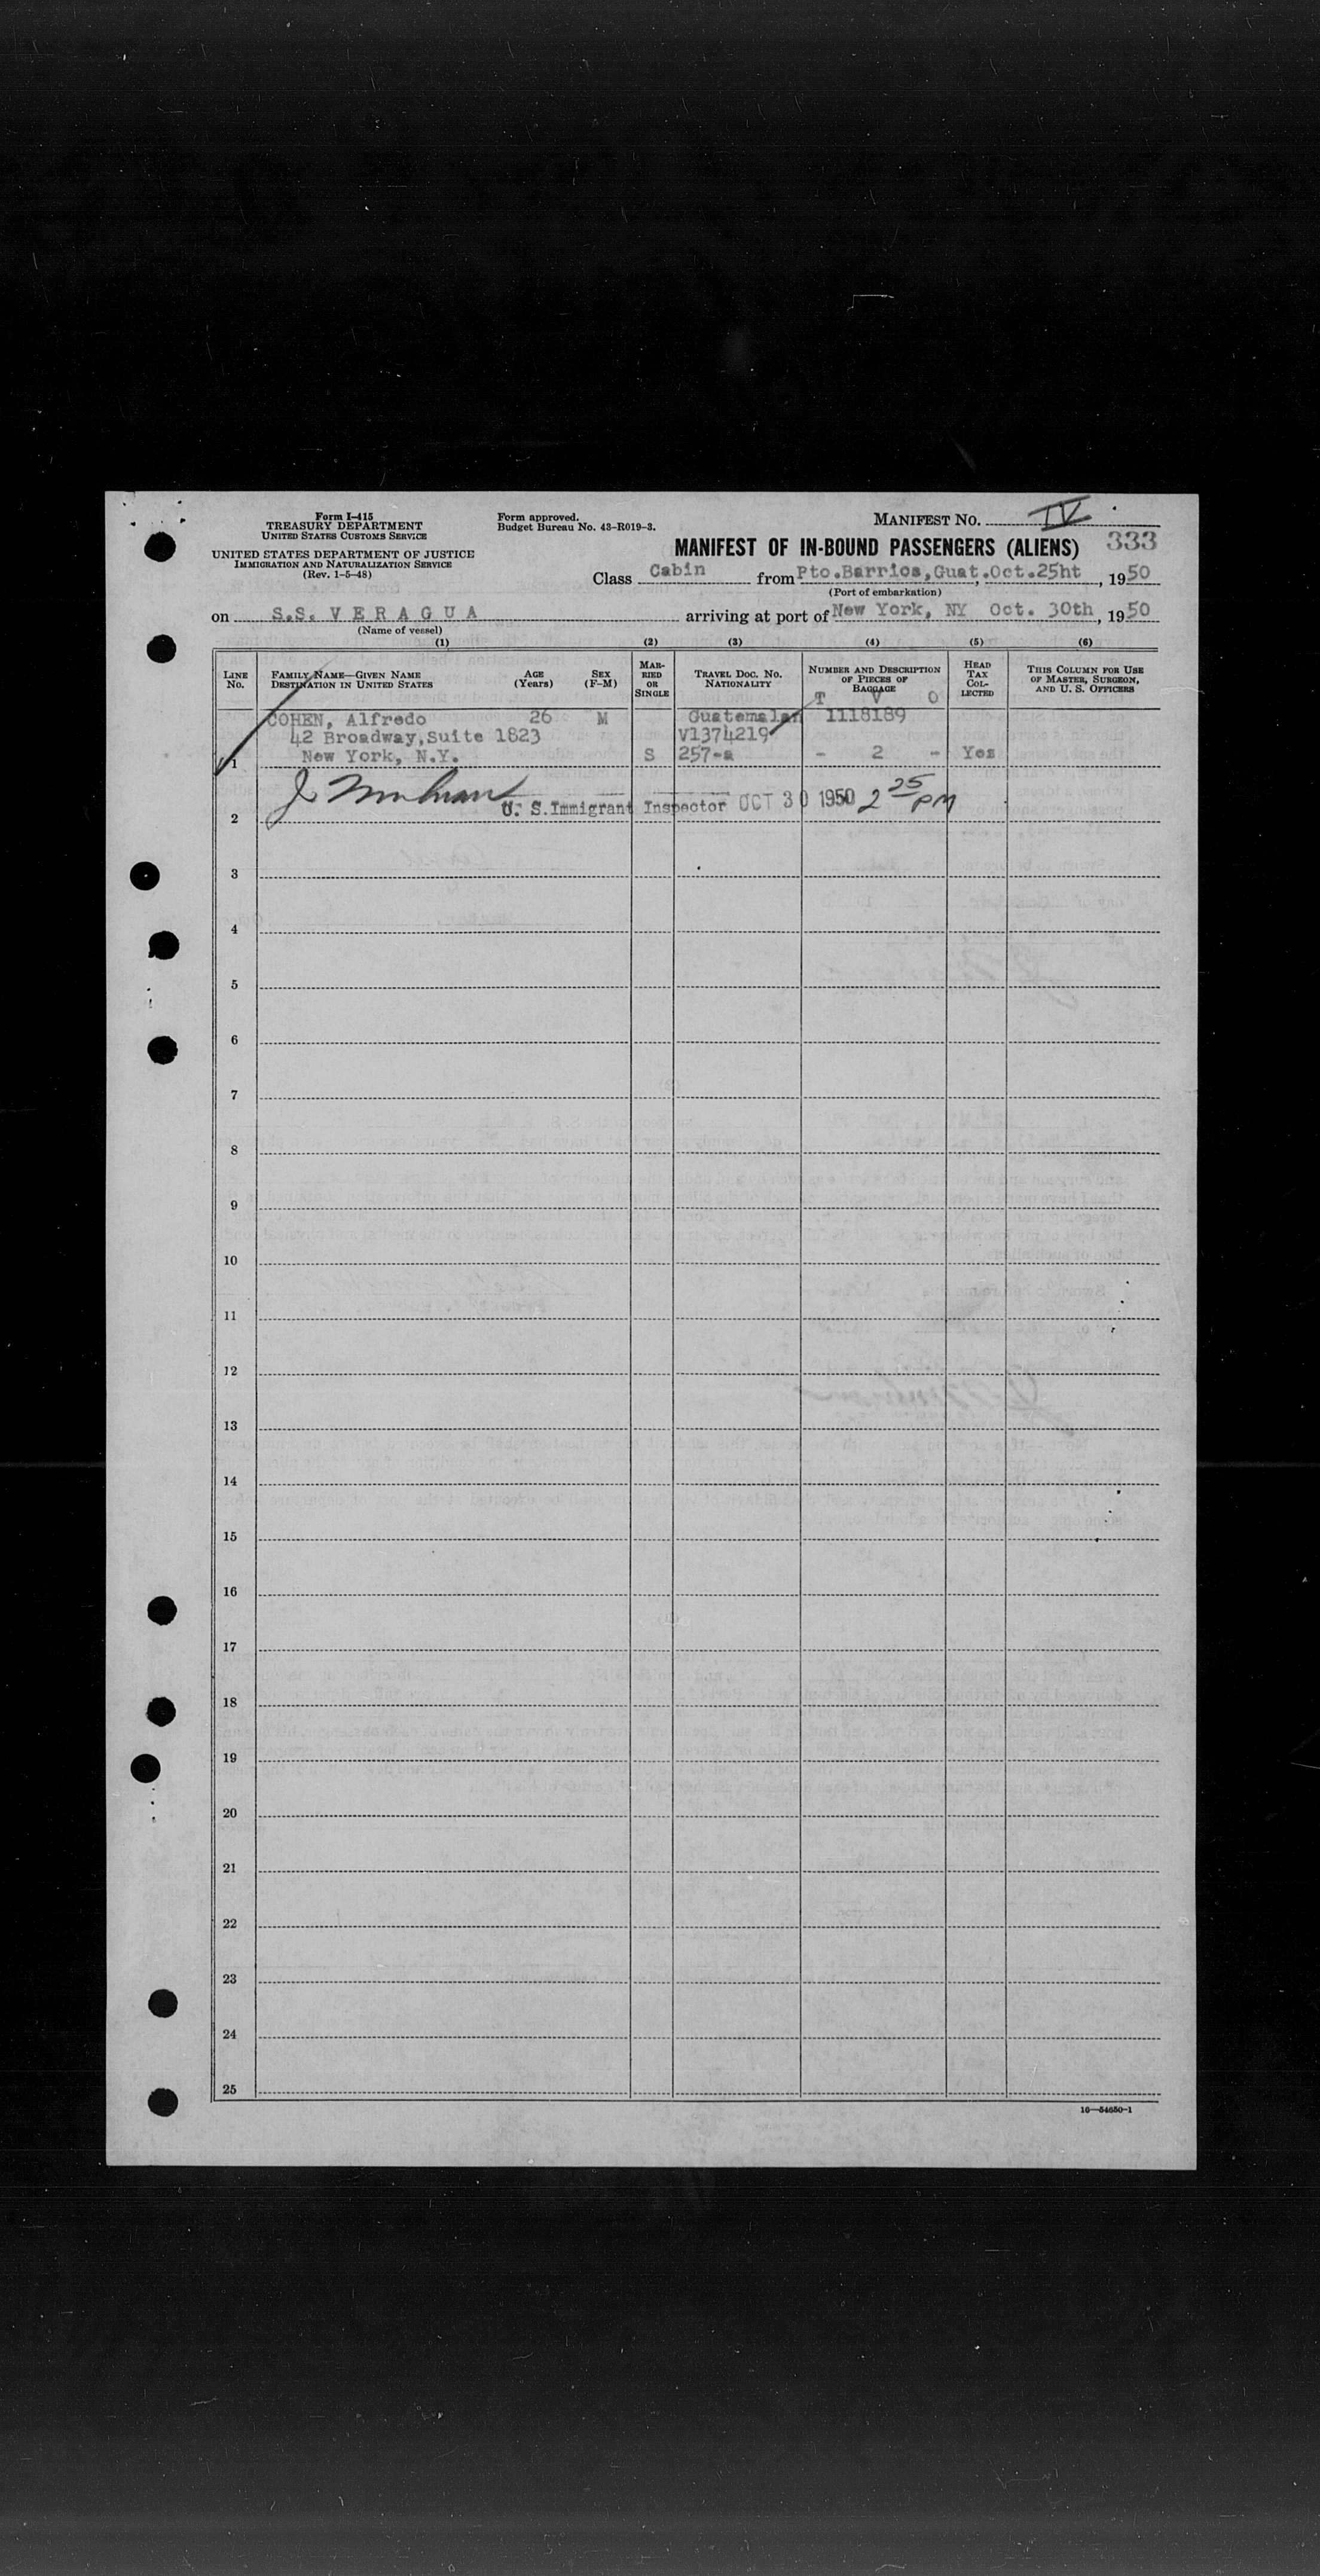 Form I-415
TREASURY DEPARTMENT
UNITED STATES CUSTOMS SERVICE
UNITED STATES DEPARTMENT OF JUSTICE
IMMIGRATION AND NATURALIZATION SERVICE
(Rev. 1-5-48)
Form approved.
Budget Bureau No. 43-R019-3.
MANIFEST NO. IV
MANIFEST OF IN-BOUND PASSENGERS (ALIENS) 333
Class Cabin from Pto.Barrios,Guat.Oct.25ht, 1950
(Port of embarkation)
on S.S. V E R A G U A arriving at port of New York, NY Oct. 30th, 1950
(Name of vessel)
(1) (2) (3) (4) (5) (6)
LINE No. FAMILY NAME—GIVEN NAME DESTINATION IN UNITED STATES AGE (Years) SEX (F-M) MARRIED OR SINGLE TRAVEL DOC. NO. NATIONALITY NUMBER AND DESCRIPTION OF PIECES OF BAGGAGE HEAD TAX COLLECTED THIS COLUMN FOR USE OF MASTER, SURGEON, AND U. S. OFFICERS
T V O
COHEN, Alfredo 26 M Guatemalan 1118189
42 Broadway,Suite 1823 V1374219
1 New York, N.Y. S 257-a - 2 - Yes
U. S.Immigrant Inspector OCT 30 1950 2 25 PM
2
3
4
5
6
7
8
9
10
11
12
13
14
15
16
17
18
19
20
21
22
23
24
25
16—54650-1